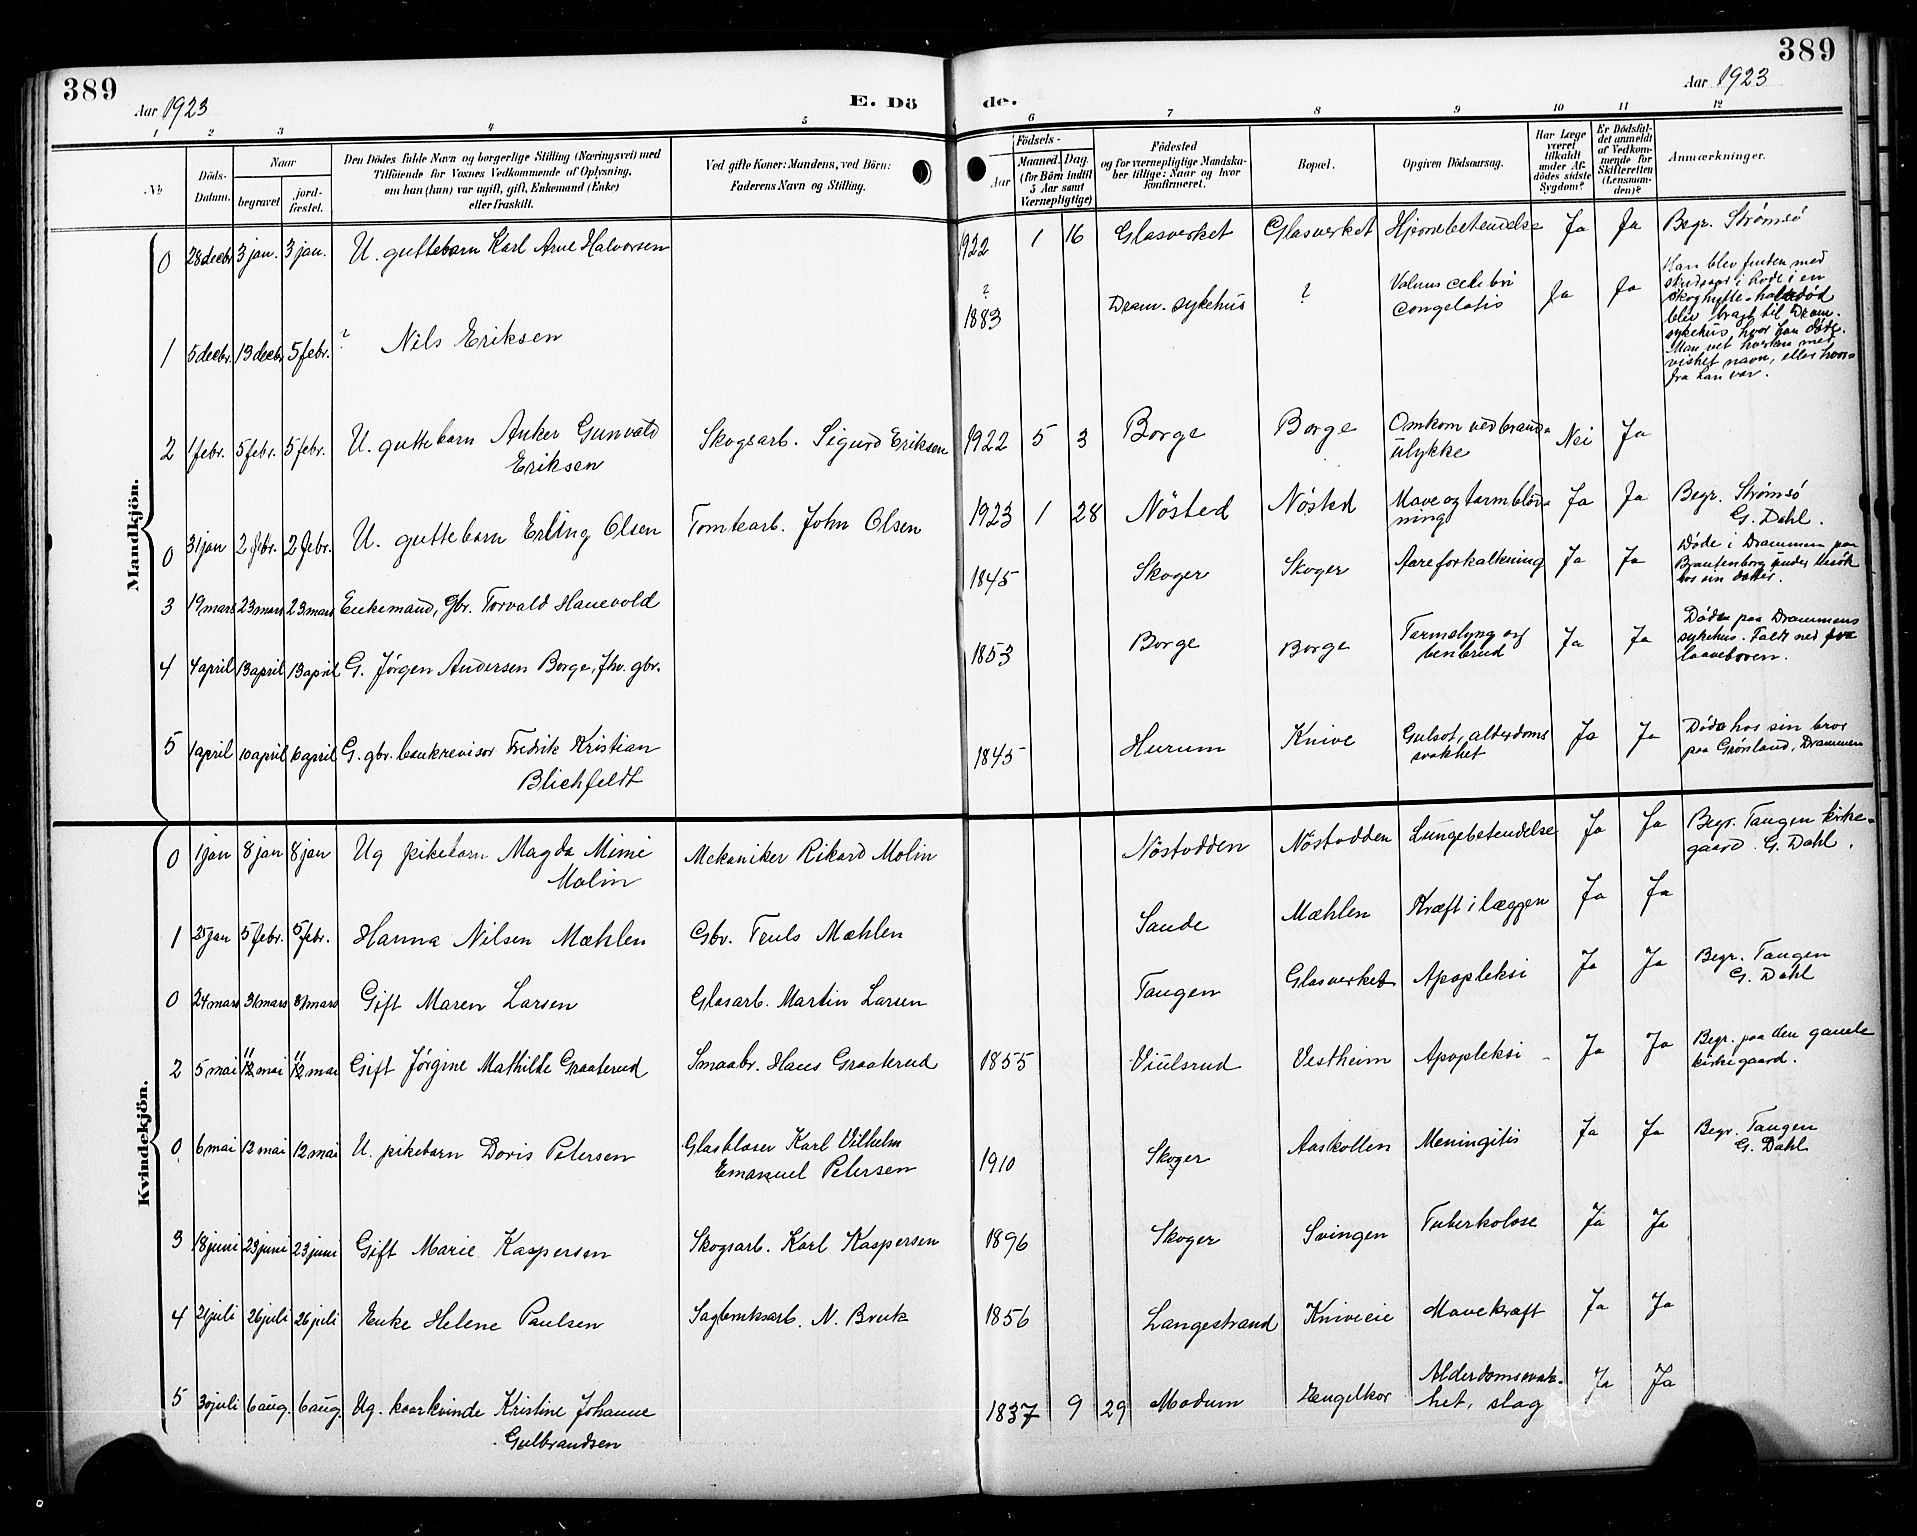 389
Aar 1923
E. Dö
de.
389
Aar 1923
1 2 3 4 5 6 7 8 9 10 11 12
№
Döds-
Datum.
Naar
begravet
jord-
fæstet.
Den Dödes fulde Navn og borgerlige Stilling (Næringsvei) med
Tilföiende for Voxnes Vedkommende af Oplysning,
om han (hun) var ugift, gift, Enkemand (Enke)
eller fraskilt.
Ved gifte Koner: Mandens, ved Börn:
Faderens Navn og Stilling.
Födsels-
Aar
Maaned. Dag.
(for Börn indtil
5 Aar samt
Værnepligtige)
Födested
og for værnepligtige Mandska-
ber tillige: Naar og hvor
konfirmeret.
Bopæl.
Opgiven Dödsaarsag.
Har Læge
været
tilkaldt
under Af-
dödes sidste
Sygdom?
Er Dödsfal-
det anmeldt
af Vedkom-
mende for
Skifteretten
(Lensman-
den)?
Anmærkninger.
Mandkjön.
0 28 decbr. 3 jan. 3 jan. U. guttebarn Karl Arne Halvorsen 1922 1 16 Glasverket Glasverket Hjernebetendelse Ja Ja Begr. Strømsö
1 5 decbr. 13 decbr. 5 febr. ? Nils Eriksen ? 1883 Dram. sykehus ? congelatis Ja Ja
Han blev funden med
skudsaar i hode i en
skoghytte halvdöd
blev bragt til Dram.
sykehus, hvor han döde.
Man vet hverken med
vished navn, eller hvor-
fra han var.
2 1 febr. 5 febr. 5 febr. U. guttebarn Anker Gunvald
Eriksen
Skogsarb. Sigurd Eriksen 1922 5 3 Borge Borge Omkom ved brand-
ulykke Nei Ja
0 31 jan 2 febr. 2 febr. U. guttebarn Erling Olsen Tomtearb. John Olsen 1923 1 28 Nösted Nösted Mave og tarmblöd-
ning Ja Ja Begr. Strømsö
G. Dahl.
3 19 mars 23 mars 23 mars Enkemand, gbr. Torvald Hanevold 1845 Skoger Skoger Aareforkalkning Ja Ja Döde i Drammen paa
Brautenborg under besök
hos sin datter.
4 4 april 13 april 13 april G. Jørgen Andersen Borge, fhv. gbr. 1853 Borge Borge Tarmslyng og
benbrud Ja Ja Döde paa Drammens
sykehus. Faldt ned fra
laaveboven.
5 1 april 10 april 10 april G. gbr. bankrevisor Fredrik Kristian
Blichfeldt
1845 Hurum Knive Gulsot, alderdoms
svakhet Ja Ja Döde hos sin bror
paa Grønland, Drammen
Kvindekjön.
0 1 jan 8 jan 8 jan Ug pikebarn Magda Mimi
Molin
Mekaniker Rikard Molin Nöstodden Nöstodden Lungebetendelse Ja Ja Begr. Tangen kirke-
gaard. G. Dahl.
1 25 jan 5 febr. 5 febr. Hanna Nilsen Mæhlen Gbr. Truls Mæhlen Sande Mæhlen Kræft i læggen Ja Ja
0 24 mars 31 mars 31 mars Gift Maren Larsen Glasarb. Martin Larsen Tangen Glasverket Apopleksi Ja Ja Begr. Tangen
G. Dahl
2 5 mai 11 12 mai 11 12 mai Gift Jørgine Mathilde Graaterud Smaabr. Hans Graaterud 1855 Viulsrud Vestheim Apopleksi Ja Ja Begr. paa den gamle
kirkegaard.
0 6 mai 12 mai 12 mai U. pikebarn Doris Petersen Glasblaser Karl Vilhelm
Emanuel Petersen
1910 Skoger Aaskollen Meningitis Ja Ja Begr. Tangen
G. Dahl
3 18 juni 23 juni 23 juni Gift Marie Kaspersen Skogsarb. Karl Kaspersen 1896 Skoger Svingen Tuberkolose Ja Ja
4 21 juli 26 juli 26 juli Enke Helene Paulsen Sagbruksarb. N. Bruk 1856 Langestrand Kniveeie Mavekræft Ja Ja
5 30 juli 6 aug. 6 aug. Ug. kaarkvinde Kristine Johanne
Gulbrandsen
1837 9 29 Modum Engelkor Alderdomssvak-
het, slag Ja Ja